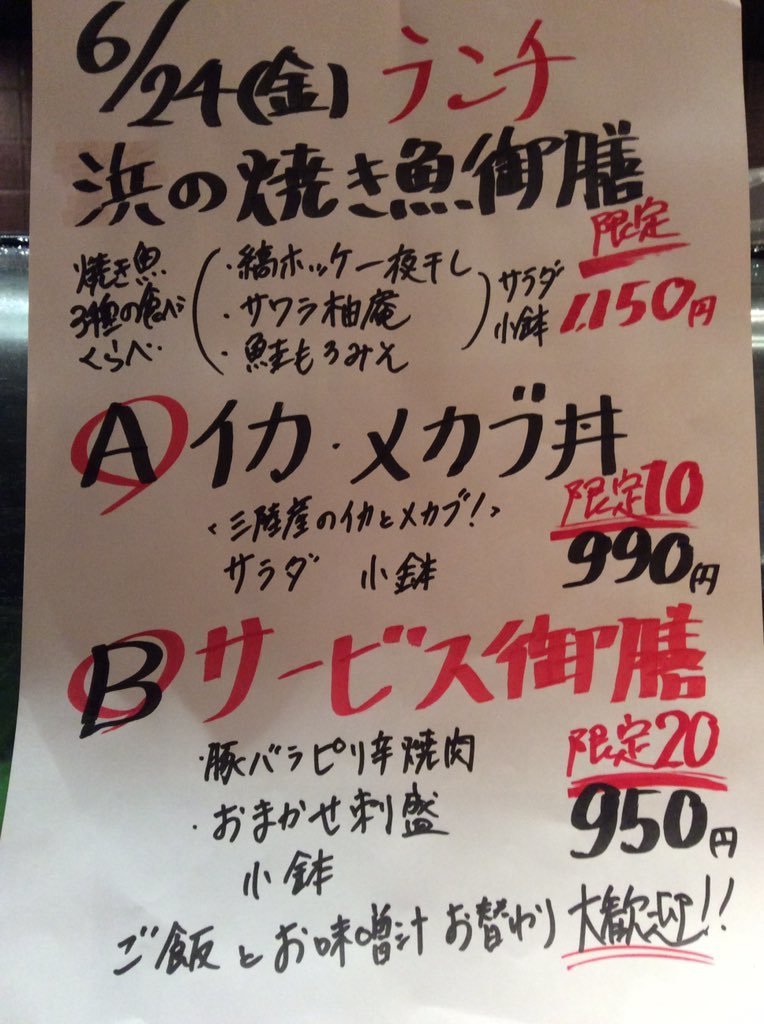 6/24(金) ランチ
浜の焼き魚御膳
限定
1,150円
焼き魚
3種の食べ
くらべ
・縞ホッケ一夜干し
・サワラ柚庵
・鮭もろみえ
サラダ
小鉢
A イカ・メカブ丼
限定10
<三陸産のイカとメカブ!>
990円
サラダ 小鉢
B サービス御膳
限定20
・豚バラピリ辛焼肉
950円
・おまかせ刺盛
小鉢
ご飯とお味噌汁お替わり大歓迎!!